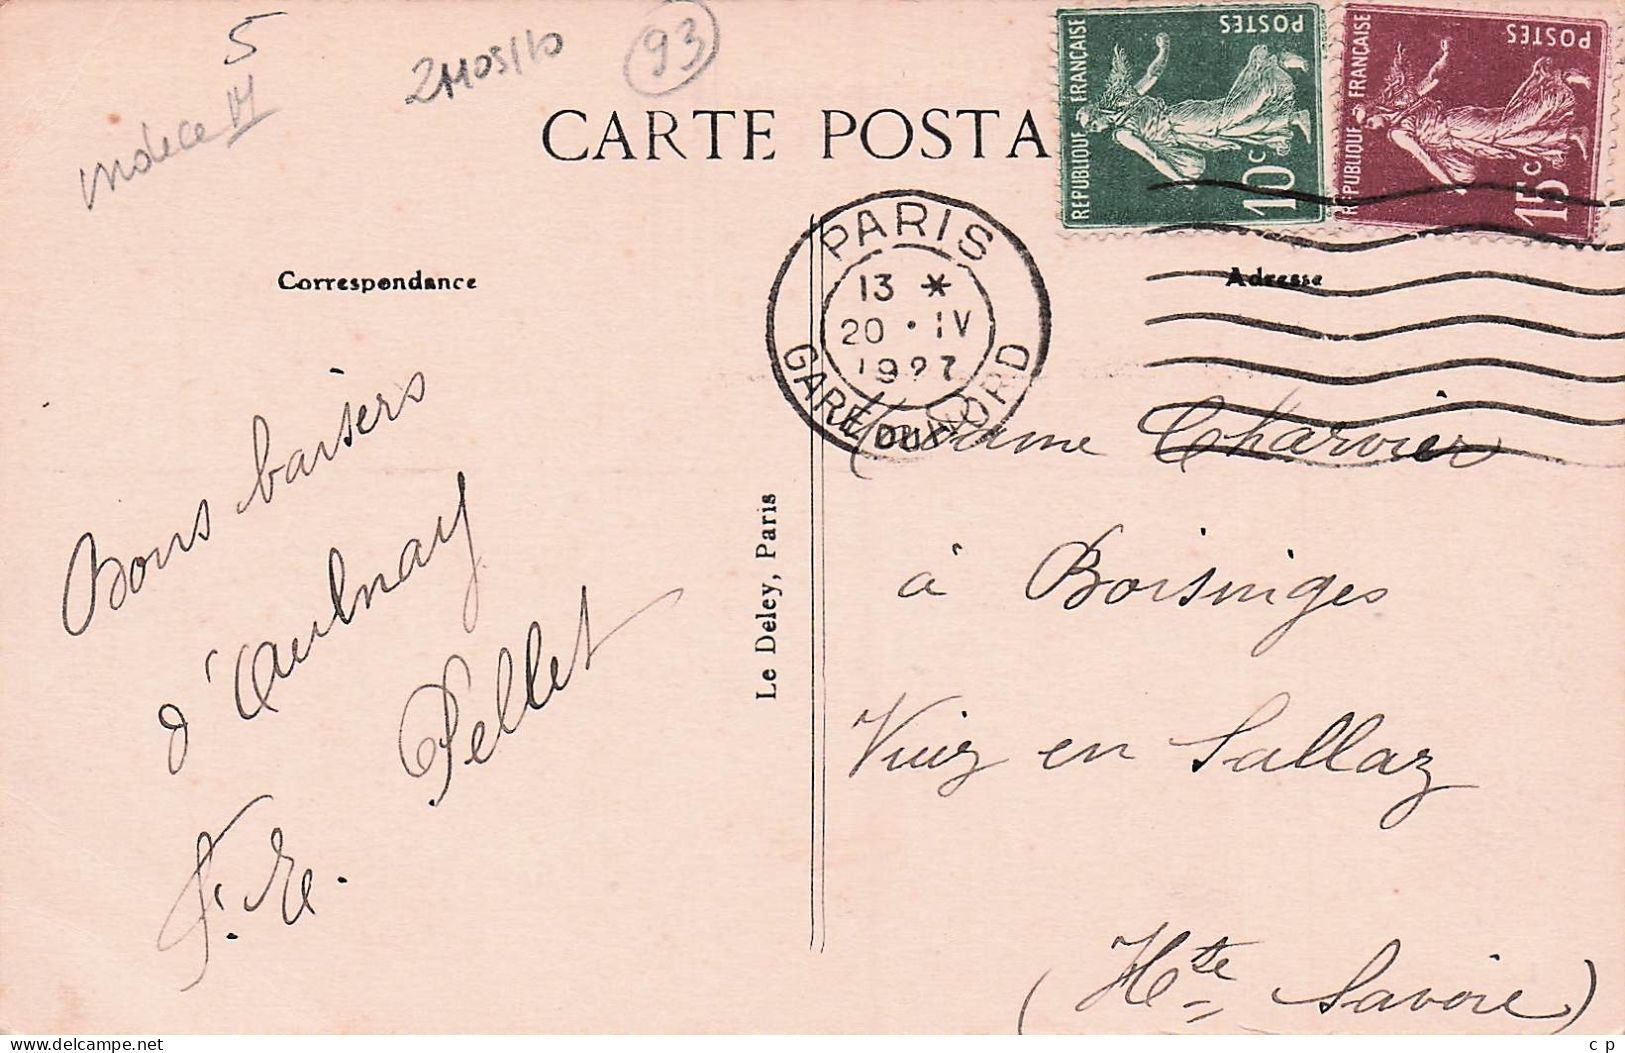 5
indice
211051/10
93
CARTE POSTA
REPUBLIQUE FRANÇAISE
POSTES
10c
REPUBLIQUE FRANÇAISE
POSTES
15c
PARIS
13 *
20 · IV
1927
GARE DU NORD
Correspondance
Adresse
Bons baisers
d'Aulnay
Pellet
Le Deley, Paris
Madame Charvier
à Boisinges
Viuz en Sallaz
(Hte Savoie)
c p